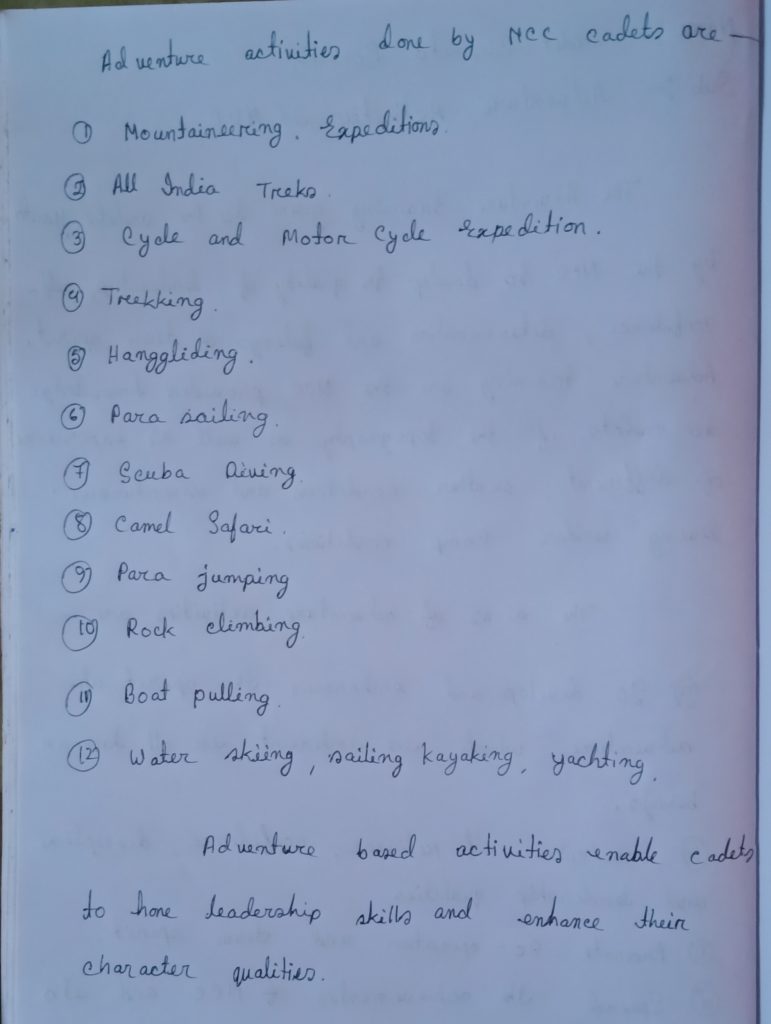 Adventure activities done by NCC cadets are —
① Mountaineering. Expeditions.
② All India Treks.
③ Cycle and Motor Cycle Expedition.
④ Trekking.
⑤ Hanggliding.
⑥ Para sailing.
⑦ Scuba Diving.
⑧ Camel Safari.
⑨ Para jumping
⑩ Rock climbing.
⑪ Boat pulling.
⑫ Water skiing, sailing kayaking, yachting.
Adventure based activities enable cadets
to hone leadership skills and enhance their
character qualities.